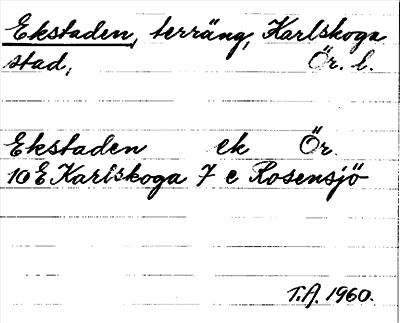 Ekstaden, terräng, Karlskoga
stad, Ör. l.
Ekstaden ek Ör.
10E Karlskoga 7 c Rosensjö
T.A. 1960.